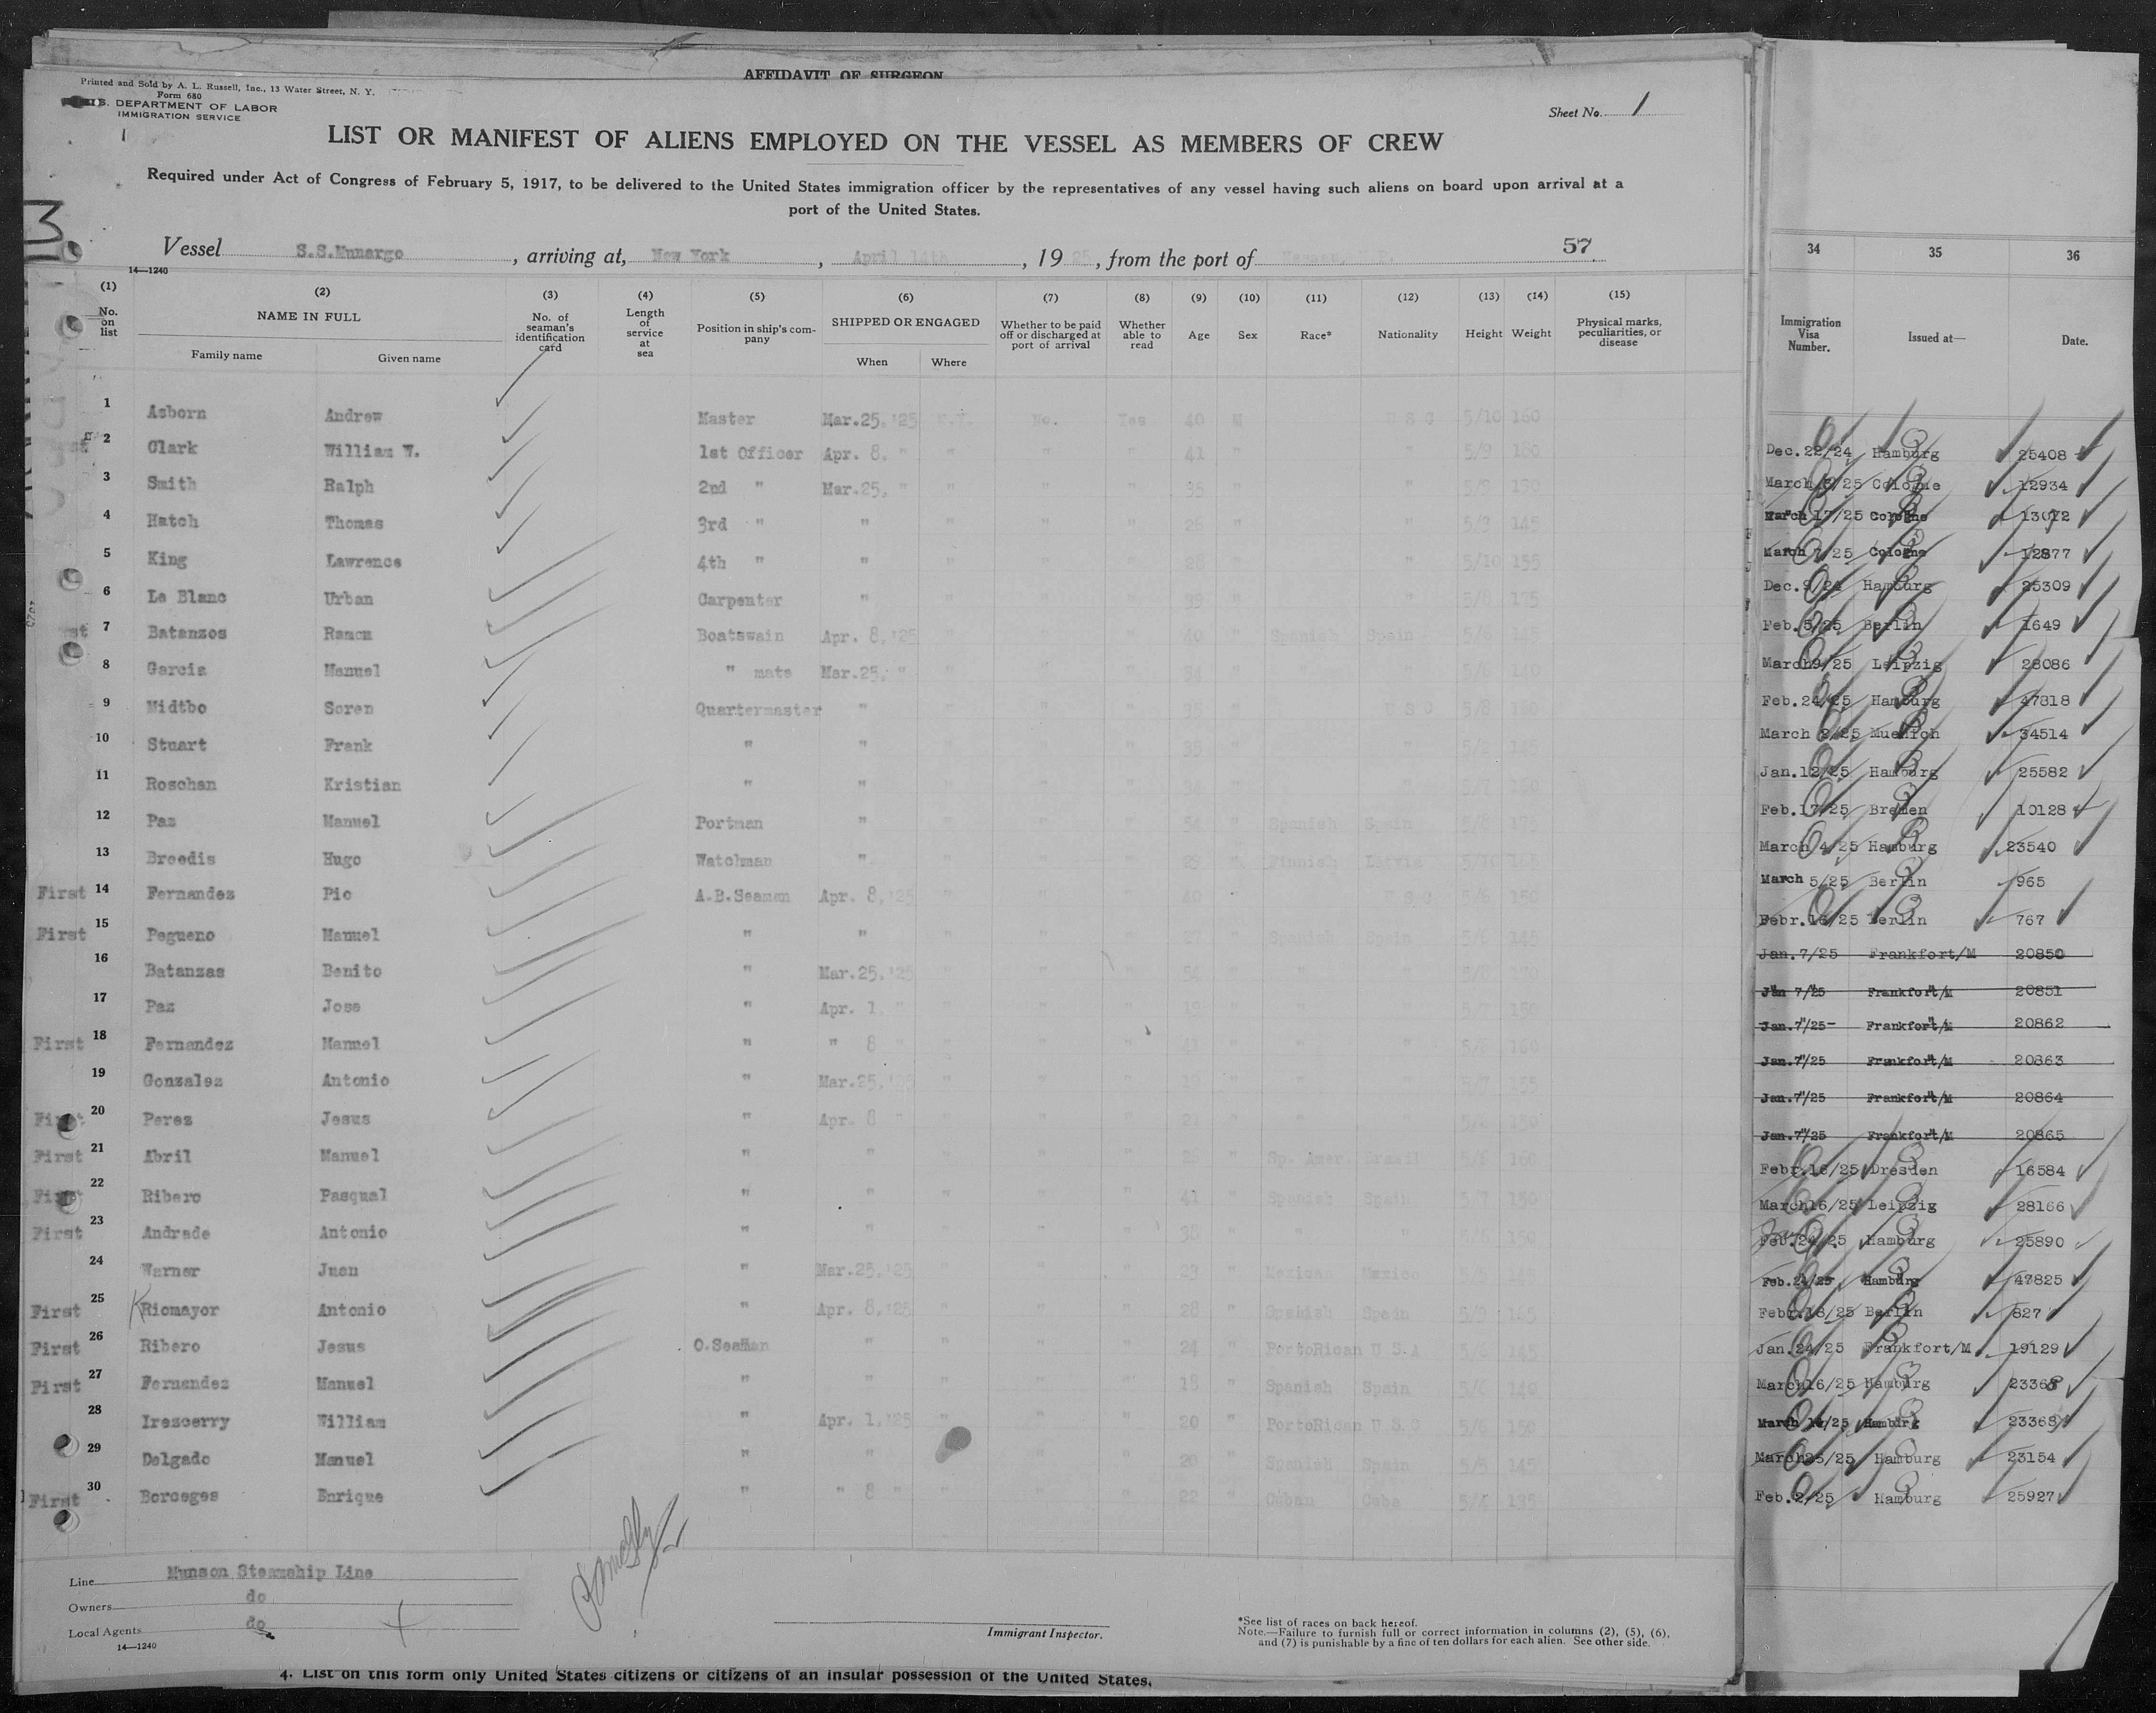 AFFIDAVIT OF SURGEON
Printed and Sold by A. L. Russell, Inc., 13 Water Street, N. Y.
Form 680
U.S. DEPARTMENT OF LABOR
IMMIGRATION SERVICE
Sheet No. 1
LIST OR MANIFEST OF ALIENS EMPLOYED ON THE VESSEL AS MEMBERS OF CREW
Required under Act of Congress of February 5, 1917, to be delivered to the United States immigration officer by the representatives of any vessel having such aliens on board upon arrival at a
port of the United States.
Vessel S.S.Munargo, arriving at, New York, April 14th, 1925, from the port of 57
14—1240
(1) (2) (3) (4) (5) (6) (7) (8) (9) (10) (11) (12) (13) (14) (15)
No. on list NAME IN FULL Family name Given name No. of seaman's identification card Length of service at sea Position in ship's company SHIPPED OR ENGAGED When Where Whether to be paid off or discharged at port of arrival Whether able to read Age Sex Race* Nationality Height Weight Physical marks, peculiarities, or disease
1 Asborn Andrew Master Mar.25,'25 N.Y. No. Yes 40 M U S C 5/10 160
2 Clark William W. 1st Officer Apr. 8, " " " " 41 " " 5/9 180
3 Smith Ralph 2nd " Mar.25, " " " " 35 " " 5/9
4 Hatch Thomas 3rd " " " " " 26 " " 5/9 145
5 King Lawrence 4th " " " " " 28 " " 5/10 155
6 Le Blanc Urban Carpenter " " " " 39 " " 5/8 175
7 Batanzos Ramon Boatswain Apr. 8,'25 " " " 40 " Spanish Spain 5/6 145
8 Garcia Manuel " mats Mar.25, " " " " 34 " " " 5/6 140
9 Midtbo Soren Quartermaster " " " " 35 " U S C 5/8 160
10 Stuart Frank " " " " " 35 " " 5/2 145
11 Roschan Kristian " " " " " 34 " " 5/7 160
12 Paz Manuel Portman " " " " 54 " Spanish Spain 5/8 175
13 Breedis Hugo Watchman " " " " 29 " Finnish Latvia 5/10 165
First 14 Fernandez Pio A.B.Seaman Apr. 8,'25 " " " 40 U S C 5/6 150
First 15 Pegueno Manuel " " " " " 27 " Spanish Spain 5/6 145
16 Batanzas Benito " Mar.25,'25 " " " 54 " " " 5/8
17 Paz Jose " Apr. 1 " " " " 19 " " " 5/7 150
First 18 Fernandez Manuel " " 8 " " " " 41 " " " 5/6 160
19 Gonzalez Antonio " Mar.25,'25 " " " 19 " " " 5/7 155
First 20 Perez Jesus " Apr. 8 " " " " 21 " " " 150
First 21 Abril Manuel " " " " " 26 " Sp. Amer. Brazil 5/6 160
First 22 Ribero Pasqual " " " " " 41 " Spanish Spain 5/7 150
First 23 Andrade Antonio " " " " " 38 " " " 5/6 150
24 Warner Juan " Mar.25,'25 " " " 23 " Mexican Mexico 5/5 145
First 25 Riomayor Antonio " Apr. 8,'25 " " " 28 " Spanish Spain 5/9 165
First 26 Ribero Jesus O.Seaman " " " " 24 " PortoRican U S.A 5/6 145
First 27 Fernandez Manuel " " " " " 18 " Spanish Spain 5/6 140
28 Irescerry William " Apr. 1,'25 " " " 20 " PortoRican U S.C 5/6 150
29 Delgado Manuel " " " " " 20 " Spanish Spain 5/5 145
First 30 Borceges Enrique " " 8 " " " " 22 " Cuban Cuba 5/4 135
Line Munson Steamship Line
Owners do
Local Agents do
14—1240
Immigrant Inspector.
*See list of races on back hereof.
Note.—Failure to furnish full or correct information in columns (2), (5), (6),
and (7) is punishable by a fine of ten dollars for each alien. See other side.
4. List on this form only United States citizens or citizens of an insular possession of the United States.
34 35 36
Immigration Visa Number. Issued at— Date.
Dec.22/24 Hamburg 25408
March /25 Cologne 12934
March 17/25 Cologne 13072
March 7/25 Cologne 12877
Dec.9/24 Hamburg 25309
Feb.5/25 Berlin 1649
March9/25 Leipzig 28086
Feb.24/25 Hamburg 47818
March 2/25 Muenich 34514
Jan.12/25 Hamburg 25582
Feb.17/25 Bremen 10128
March 4/25 Hamburg 23540
March 5/25 Berlin 965
Febr.16/25 Berlin 767
Jan.7/25 Frankfort/M 20850
Jan 7/25 Frankfort/M 20851
Jan.7/25 Frankfort/M 20862
Jan.7/25 Frankfort/M 20863
Jan.7/25 Frankfort/M 20864
Jan.7/25 Frankfort/M 20865
Febr.16/25 Dresden 16584
March16/25 Leipzig 28166
Feb.24/25 Hamburg 25890
Feb.24/25 Hamburg 47825
Febr.18/25 Berlin 827
Jan.24/25 Frankfort/M 19129
March16/25 Hamburg 23368
March 14/25 Hamburg 23368
March26/25 Hamburg 23154
Feb.2/25 Hamburg 25927